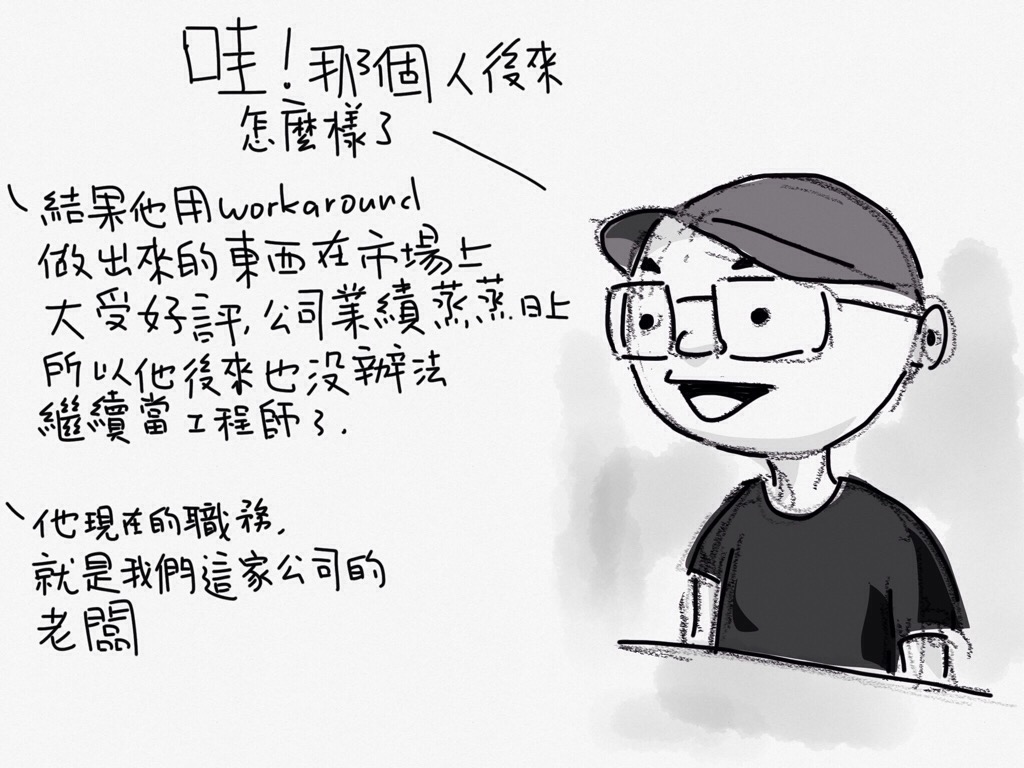 哇!那個人後來
怎麼樣了
結果他用workaround
做出來的東西在市場上
大受好評,公司業績蒸蒸日上
所以他後來也没辦法
繼續當工程師了.
他現在的職務,
就是我們這家公司的
老闆